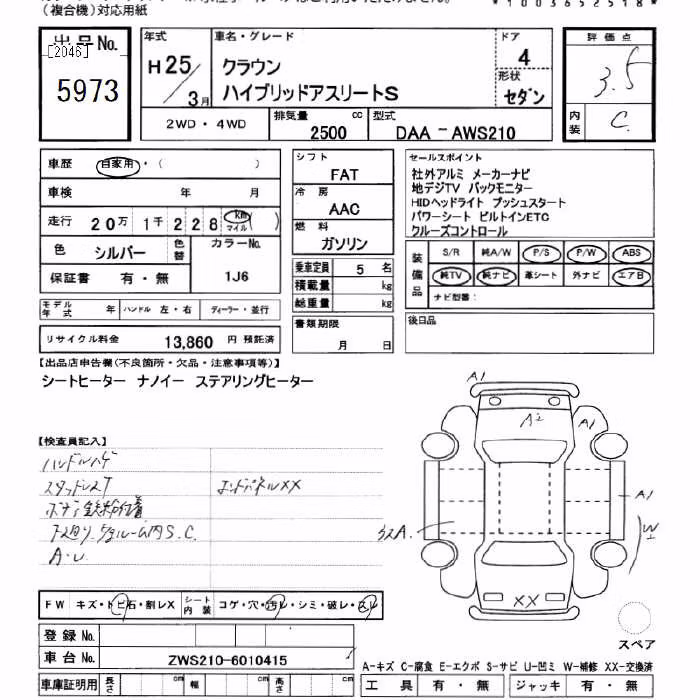 （複合機）対応用紙
*1003652518*
出品No.
[2046]
5973
年式
H25/3月
車名・グレード
クラウン
ハイブリッドアスリートS
ドア
4
形状
セダン
評価点
3.5
内装
C
2WD・4WD
排気量
2500
cc
型式
DAA-AWS210
車歴
自家用・（　　　）
車検　年　月
走行
20万1千228
km
マイル
（　）
色
シルバー
色替
カラーNo.
1J6
保証書　有・無
モデル年式　年
ハンドル　左・右
ディーラー・並行
リサイクル料金　13,860　円　預託済
シフト
FAT
冷房
AAC
燃料
ガソリン
乗車定員　5　名
積載量　kg
総重量　kg
書類期限
月　日
セールスポイント
社外アルミ　メーカーナビ
地デジTV　バックモニター
HIDヘッドライト　プッシュスタート
パワーシート　ビルトインETC
クルーズコントロール
装備品
S/R　純A/W　P/S　P/W　ABS
純TV　純ナビ　革シート　外ナビ　エアB
ナビ型番：
後日品
【出品店申告欄(不良箇所・欠品・注意事項等)】
シートヒーター　ナノイー　ステアリングヒーター
【検査員記入】
ハンドルハゲ
スタッドレスT
エンドパネルXX
ボデー鉄粉付着
下廻り
ルーム内S.C.
A・U
A1
A2
A1
A1
A
W
XX
スペア
FW　キズ・トビ石・割レX
シート内装　コゲ・穴・汚レ・シミ・破レ・スレ
登録No.
車台No.　ZWS210-6010415
車庫証明用　長さ　cm　幅　cm　高さ　cm
A-キズ　C-腐食　E-エクボ　S-サビ　U-凹ミ　W-補修　XX-交換済
工具　有・無　ジャッキ　有・無